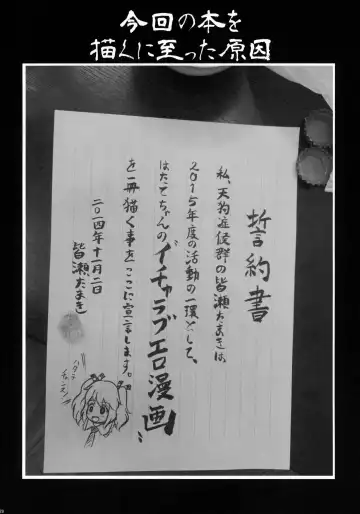 今回の本を
描くに至った原因
誓約書
私、天狗症候群の皆瀬たまきは、
2015年度の活動の一環として、
はたてちゃんの〝イチャラブエロ漫画〟
を一冊描く事をここに宣言します。
二〇一四年十一月二日
皆瀬たまき
ハタテ